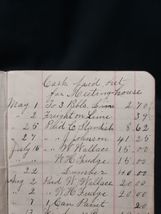 Cash paid out
for Meeting house
May 1 To 3 Bbls Lime 2 70
" 2 Freight on Lime 37
" 25 Paid C 8 62
" 27 " J Johnson 41 25
July 16 " W Wallace 15 00
" W H Fudge 15 00
" 22 " Lumber 44 00
Aug 2 Paid W Wallace 15 00
" W H Fudge 20 00
" 7 1 Can Paint 20